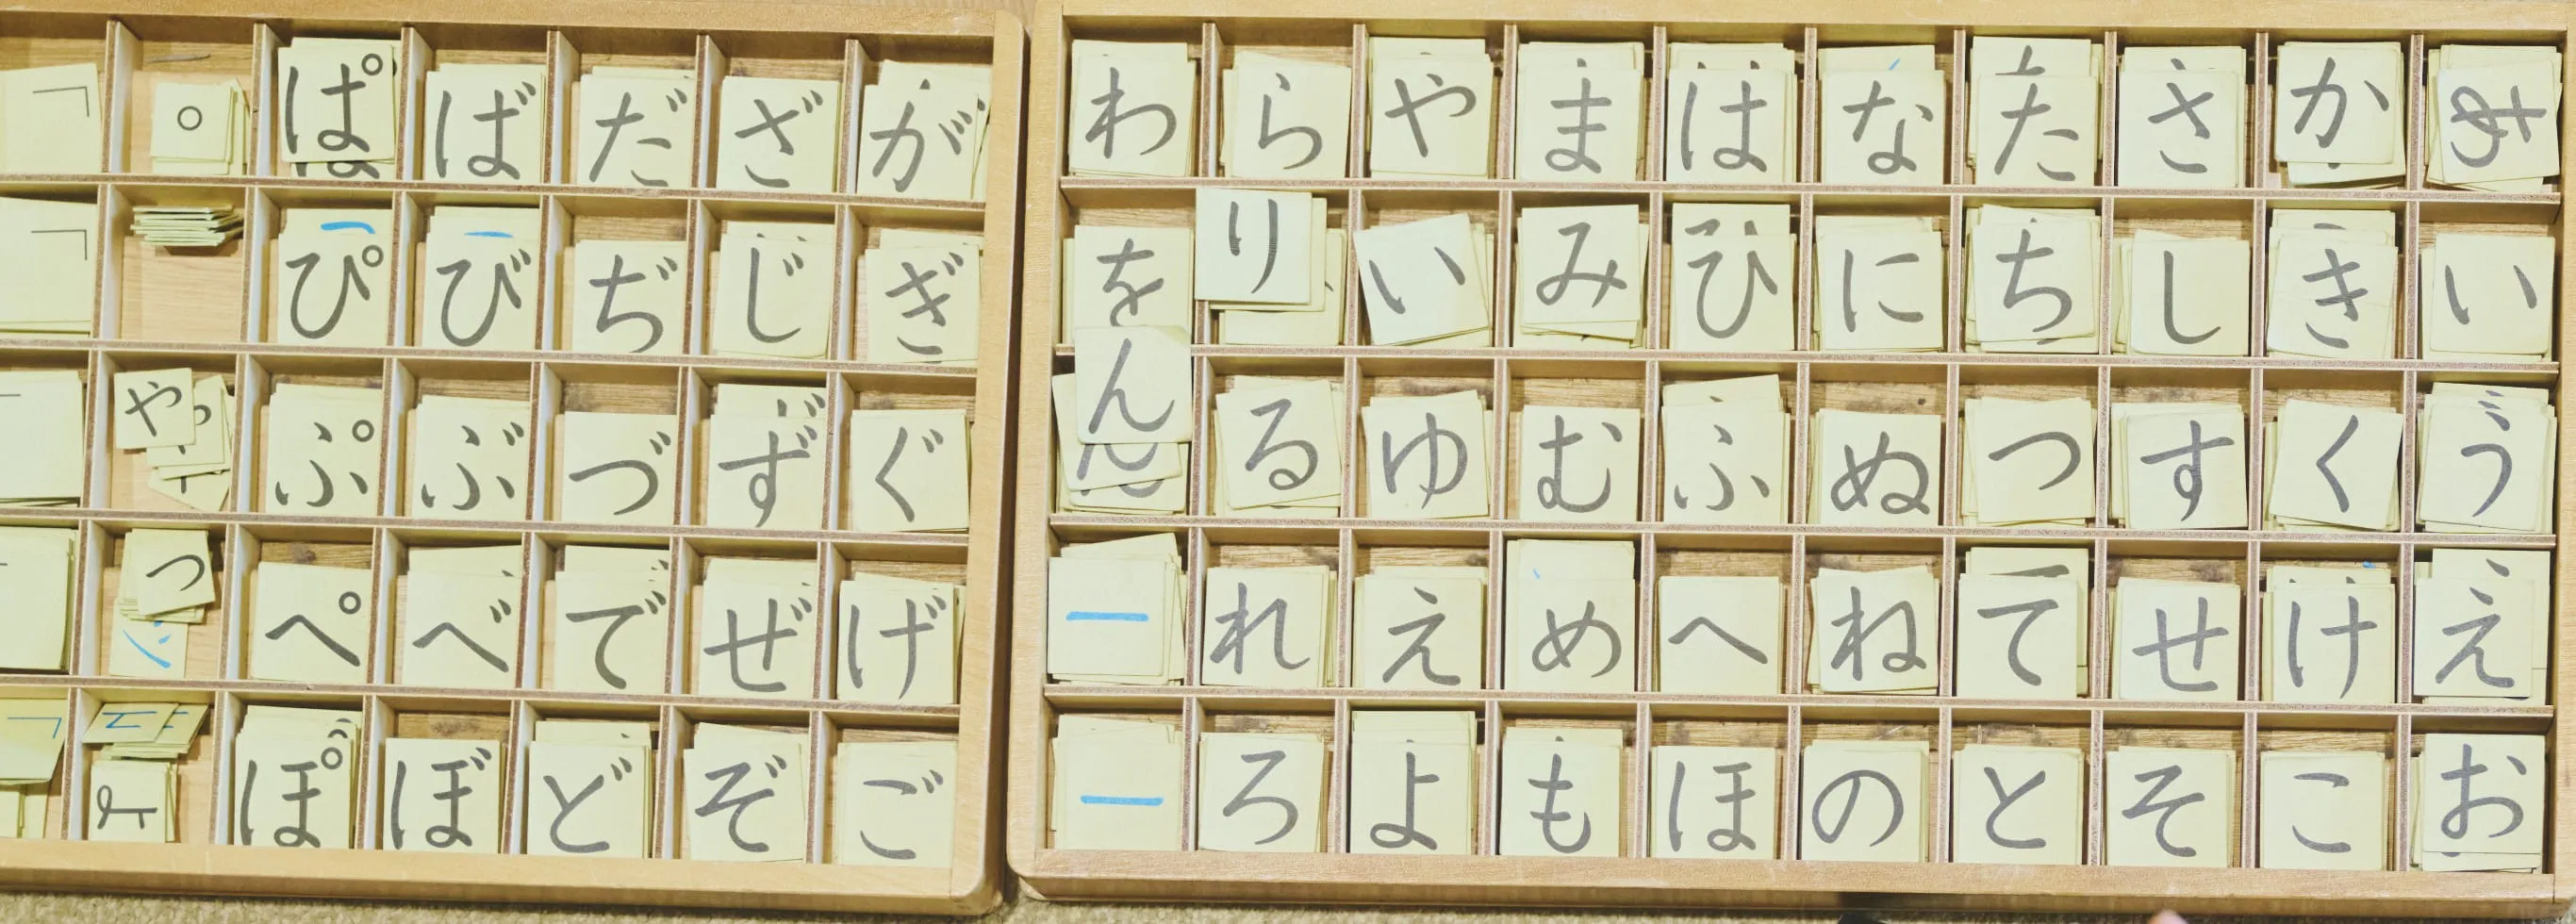 あいうえお
かきくけこ
さしすせそ
たちつてと
なにぬねの
はひふへほ
まみむめも
やいゆえよ
らりるれろ
わをんーー
がぎぐげご
ざじずぜぞ
だぢづでど
ばびぶべぼ
ぱぴぷぺぽ
。ゃっょ